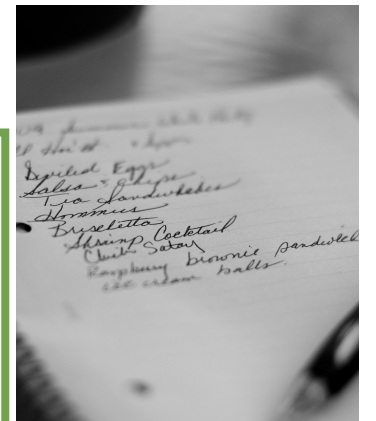 Deviled Eggs
Salsa & Chips
Tea Sandwiches
Hommus
Bruschetta
Shrimp Cocktail
Satay
Raspberry brownie sandwich
ice cream balls.